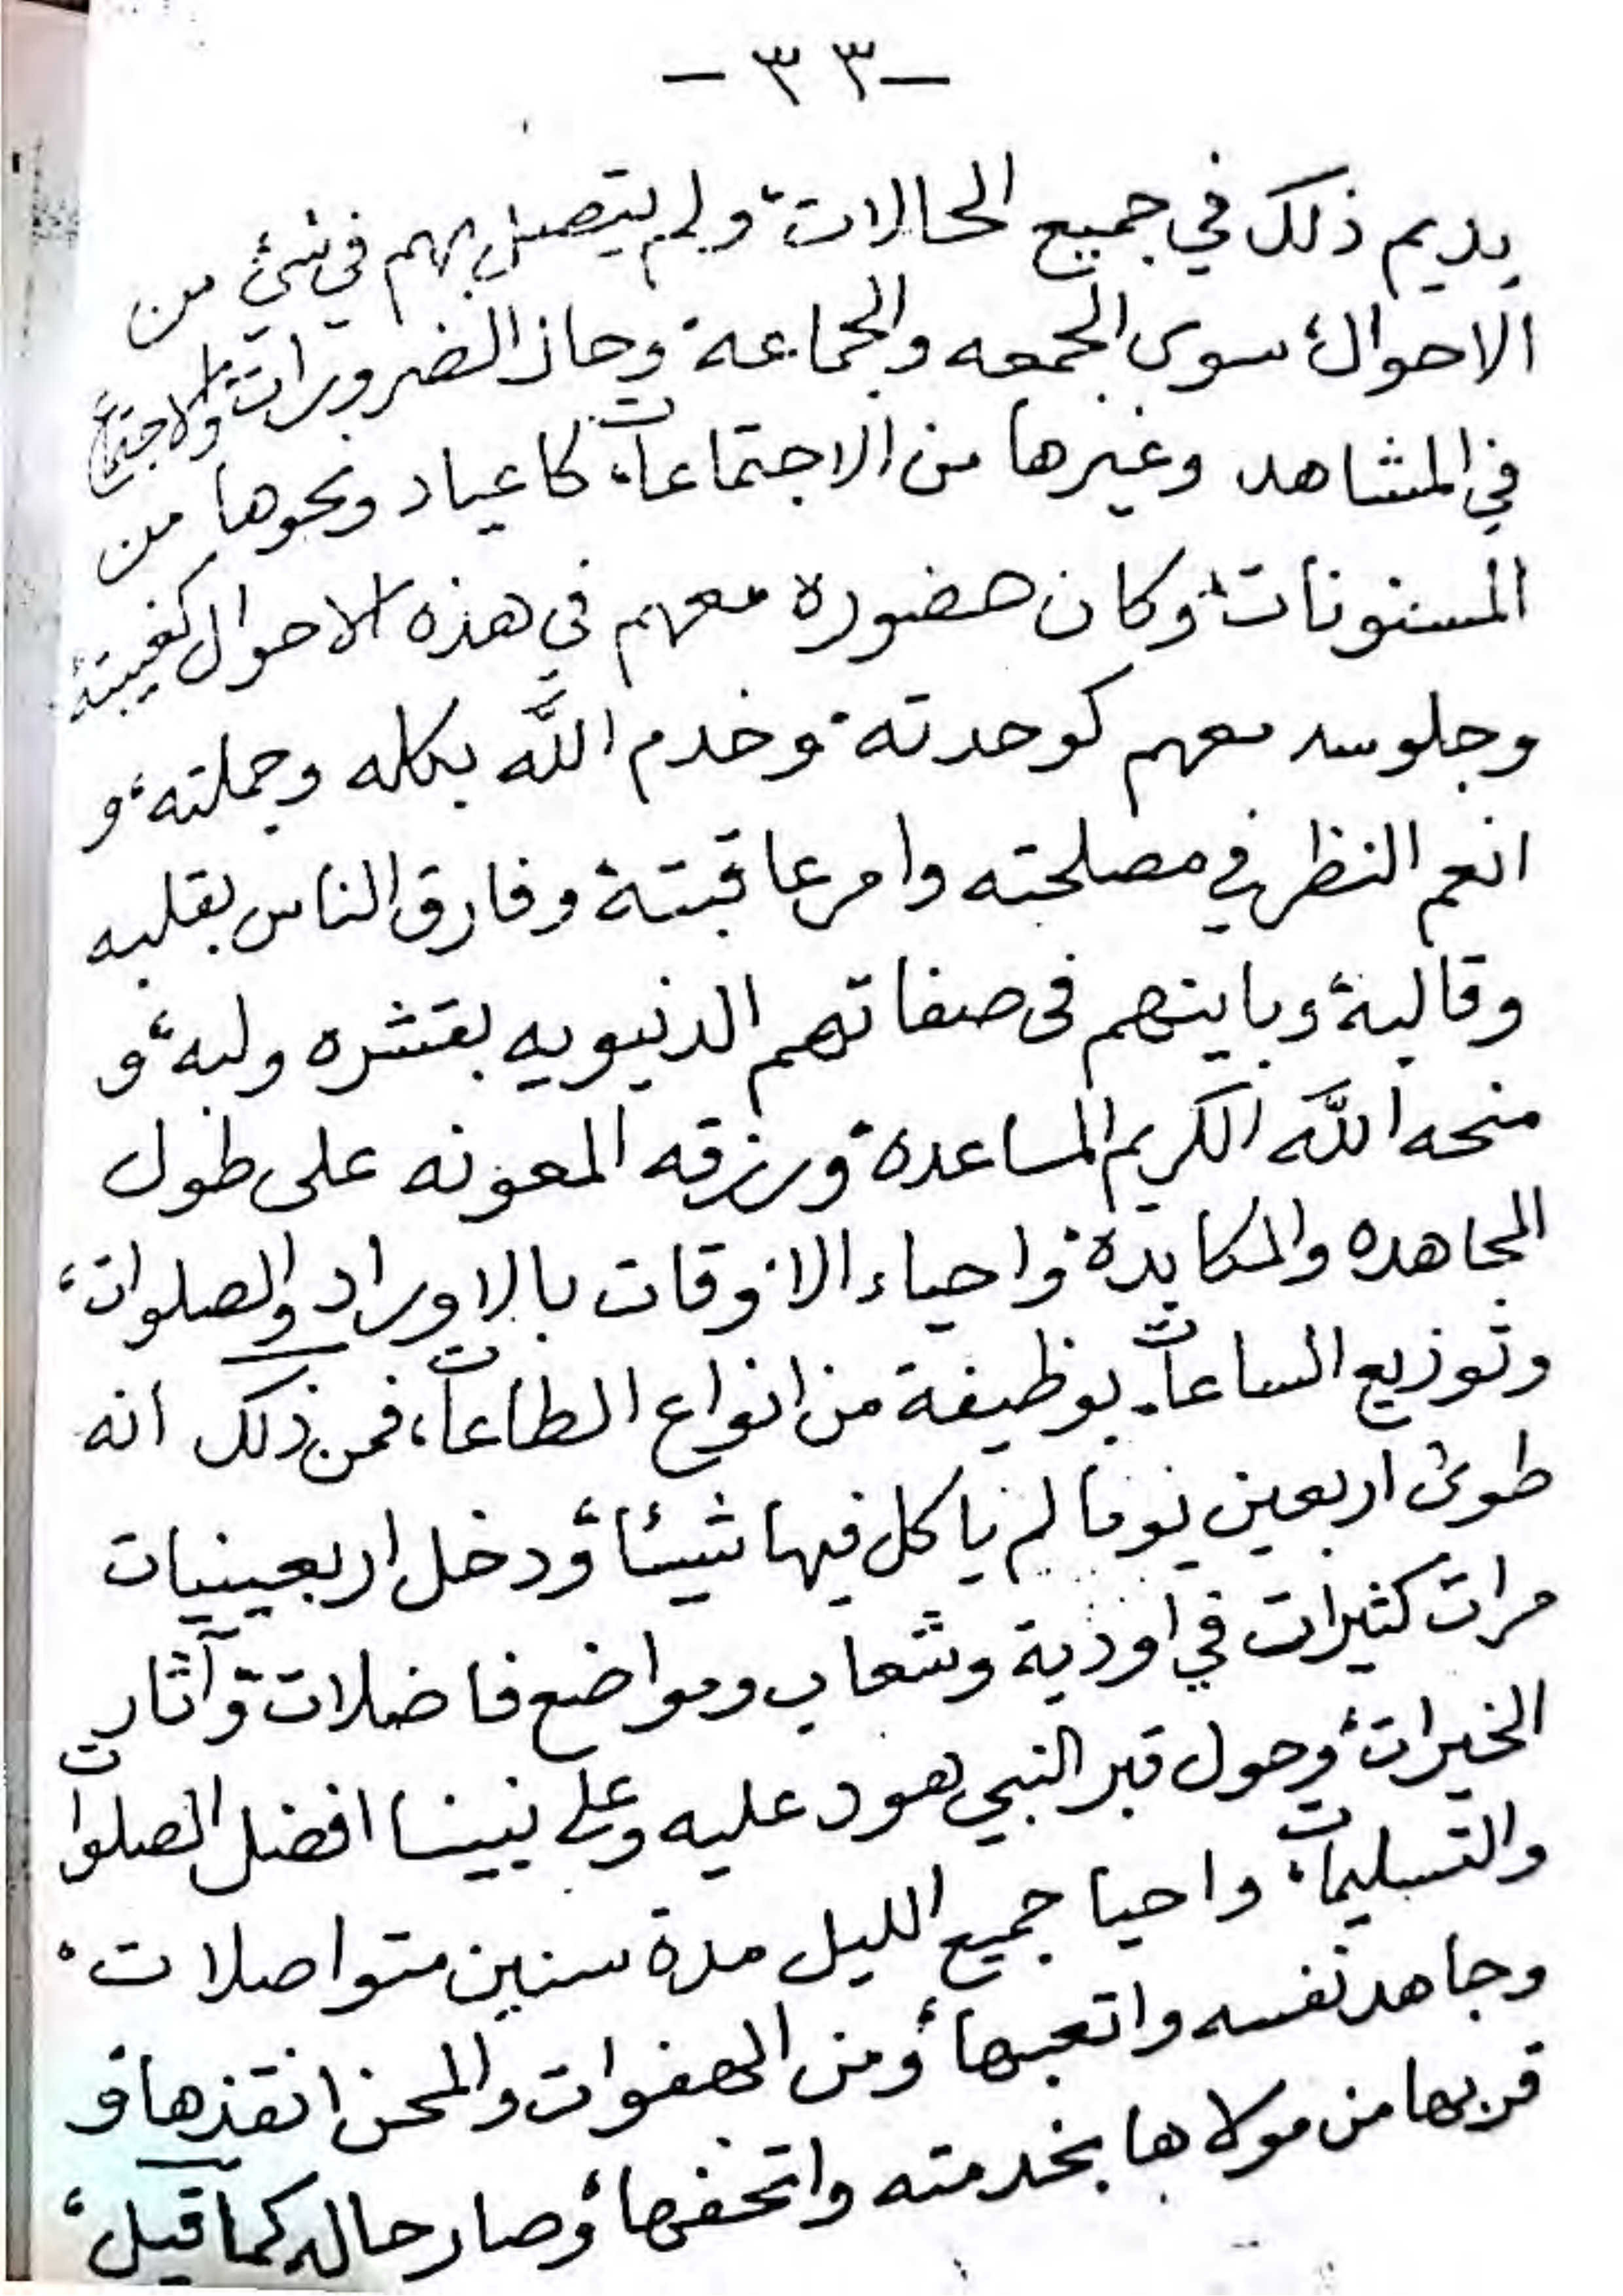 -٣٣-
يديم ذلك في جميع الحالات، ولم يتصل بهم في شئ من
الاحوال، سوى الجمعه والجماعة، وحاز الضرورات، والاجتماع
في المشاهد وغيرها من الاجتماعات، كاعياد ونحوها من
المسنونات، وكان حضوره معهم في هذه الاحوال كغيبته،
وجلوسه معهم كوحدته، وخدم اللّه بكله وجملته، و
انعم النظر في مصلحته وامر عاقبته، وفارق الناس بقلبه
وقالبه، وباينهم فى صفاتهم الدنيويه بقشره ولبه، و
منحه اللّه الكريم المساعدة، ورزقه المعونه على طول
المجاهده والمكابدة، واحياء الاوقات بالاوراد والصلوات،
وتوزيع الساعات، بوظيفة من انواع الطاعات، فمن ذلك انه
طوى اربعين يوما لم ياكل فيها شيئا، ودخل اربعينيات
مرات كثيرات في اودية وشعاب ومواضع فاضلات، وآثار
الخيرات، وحول قبر النبي هود عليه وعلى نبينا افضل الصلوات
والتسليمات، واحيا جميع الليل مدة سنين متواصلات،
وجاهد نفسه واتعبها، ومن الهفوات والمحن انقذها، و
قربها من مولاها بخدمته واتحفها، وصار حاله كما قيل،